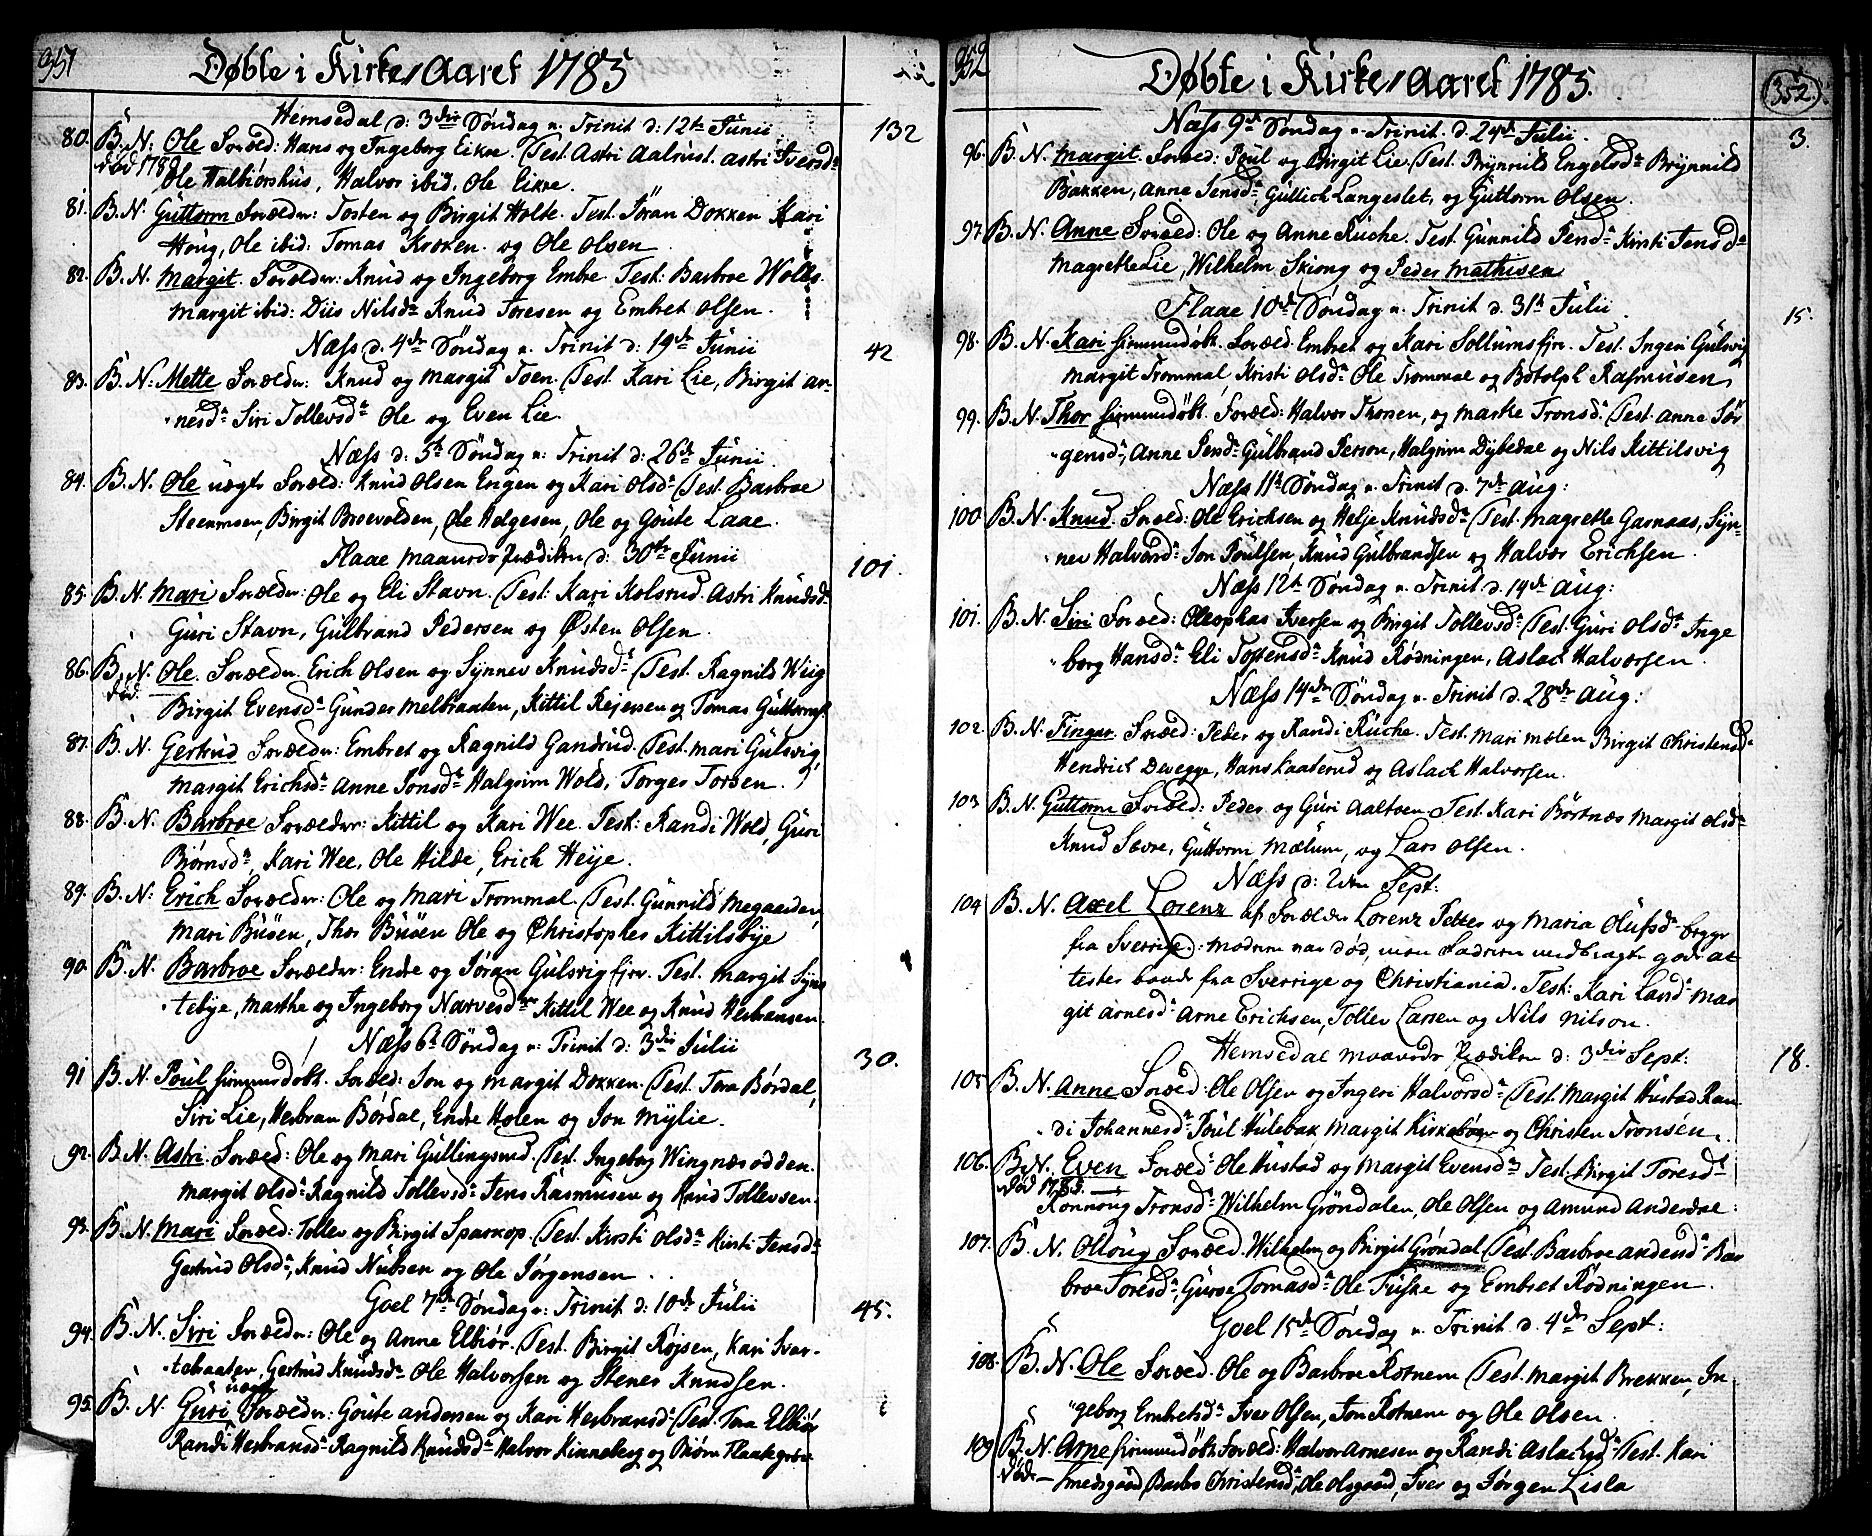 351
Døbte i Kirke Aaret 1785
Hemsedal d: 3die Søndag n. Trinit d: 12te Junii
132
80. B. N: Ole Foræld: Hans og Ingeborg Eikre. Test. Astri Aalrust. Astri Iversd.
død 178
Ole Halbiørshus, Halvor ibid. Ole Eikre.
81. B. N. Guttorm Foræld: Tosten og Birgit Holte. Test. Jøran Dokken Kari
Houg, Ole ibid: Tomas Kroken. og Ole Olsen
82. B. N. Margit. Forældr: Knud og Ingeborg Embre Test: Barbroe Wolds.
Margit ibid: Diis Nilsd. Knud Toresen og Embret Olsen.
Næss d. 4de Søndag n. Trinit d: 19de Junii
42
83. B. N: Mette Forældr: Knud og Margit Toen. Test. Kari Lie, Birgit Ar-
nesd. Siri Tollevsd. Ole og Even Lie.
Næss d: 5te Søndag n: Trinit d: 26de Junii
84. B. N. Ole uægte Foræld: Knud Olsen Engen og Kari Olsd. Test. Barbroe
Steenmoen, Birgit Broevolden, Ole Helgesen, Ole og Goute Laae.
Flaae Maaneds Prædiken d: 30te Junii
101.
85. B. N. Mari Forældr: Ole og Eli Stavn. Test: Kari Kolsrud. Astri Knudsd.
Guri Stavn, Gulbrand Pedersen og Østen Olsen.
86. B. N. Ole. Forældr. Erich Olsen og Synnev Knudsd. Test. Ragnild Wiig
død.
Birgit Evensd. Gunder Melbraaten, Kittil Rejersen og Tomas Guttorms.
87. B. N. Gertrud Forældr: Embret og Ragnild Gandrud. Test. Mari Gulsvig,
Margit Erichsd. Anne Jonsd. Halgrim Wold, Torger Torsen.
88. B. N. Barbroe Forældr: Kittil og Kari Wee. Test: Randi Wold, Guri
Biørnsd., Kari Wee, Ole Hilde, Erich Heije.
89. B. N: Erich Forældr: Ole og Mari Trommal. Test. Gunnild Megaarden,
Mari Buøen, Thor Buøen Ole og Christopher Kittilsbye
90. B. N. Barbroe Forældr: Endre og Jøran Gulsvigejer. Test. Margit Syn
tebye, Marthe og Ingeborg Narvesd. Kittil Wee og Knud Herbransen.
Næss 6te Søndag n: Trinit d: 3die Julii
30.
91 B. N. Poul hiemmedøbt. Foræld: Jon og Margit Dokken. Test. Tora Børdal,
Siri Lie, Herbran Børdal, Endre Holen og Jon Mylie.
92. B. N. Astri. Foræld: Ole og Mari Gullingsrud. Test. Ingeborg Wingnæsodden.
Margit Olsd. Ragnild Tollevsd. Jens Rasmusen og Knud Tollevsen.
93. B. N. Mari Foræld: Tollev og Birgit Sparkop. Test. Kirsti Olsd. Kirsti Jensd.
Gertrud Olsd., Knud Nubsen og Ole Jørgensen.
Goel 7de Søndag n: Trinit d: 10de Julii
45.
94. B. N. Siri Forældr: Ole og Anne Elbiør. Test. Birgit Røjsen, Kari Svar-
tebraaten, Gertrud Knudsd. Ole Halvorsen og Stener Knudsen.
uægte
95. B. N Guri Forældr: Goute Andersen og Kari Herbransd. Test. Tora Elbiør
Randi Herbransd. Ragnild Knudsd. Halvor Kinneberg og Biørn Flaakgrøv
952
Døbte i Kirke Aaret 1785.
352.
Næss 9de Søndag n. Trinit. d. 24de Julii.
3.
96. B. N. Margit. Foræld: Poul og Birgit Lie. Test. Brynnild Engelsd. Brynnild
Bakken, Anne Jensd. Gullich Langeslet, og Guttorm Olsen.
97 B. N. Anne Foræd: Ole og Anne Ruche. Test. Gunnild Pensd. Kirsti Jensd.
Magrethe Lie, Wilhelm Skiong og Peder Mathisen
Flaae 10de Søndag n. Trinit d. 31te Julii
15.
98. B. N. Kari hiemmedøbt. Foræld. Embret og Kari Sollumsejer. Test. Ingeri Gulsvig
Margit Trommal, Kristi Olsd. Ole Trommal og Botolph Rasmusen
99. B. N. Thor hiemmedøbt. Foræld: Halvor Thoresen, og Marthe Tronsd. Test. Anne Jør
gensd., Anne Pensd. Gulbrand Person, Halgrim Dybedal og Nils Kittilsvig
Næss 11te Søndag n. Trinit d. 7de Aug:
100 B. N. Knud. Foræld: Ole Erichsen og Helje Knudsd. Test. Magrethe Garnaas, Syn-
nev Halvorsd. Jon Poulsen, Knud Gulbrandsen og Halvor Erichsen.
Næss 12te Søndag n. Trinit d. 14de Aug:
101. B. N. Siri Foræld: Oleophas Iversen og Birgit Tollevsd. Test. Guri Olsd. Inge
borg Hansd. Eli Tostensd. Knud Rødningen, Aslach Halvorsen.
Næss 14de Søndag n. Trinit d. 28de Aug:
102 B. N. Finger. Foræld: Peder og Randi Ruche. Test. Mari Mælen Birgit Christensd.
Hendrich Devegge, Hans Kaaterud og Aslach Halvorsen.
103 B. N. Guttorm Foræld: Peder og Guri Aaltven. Test. Kari Børtnæs Margit Olsd.
Knud Sevre, Guttorm Mælum, og Lars Olsen.
Næss d: 2den Sept:
104 B. N. Axel Lorenz af Forældre Lorenz Petter og Maria Olufsd. begge
fra Sverrige: Moderen var død, men Faderen medbragte gode at
tester baade fra Sverrige og Christiania. Test: Kari Land. Mar
git Arnesd. Arne Erichsen, Tollev Larsen og Nils Nilson.
Hemsedal Maaneds Prædiken d: 3die Sept:
18.
105 B. N. Anne Foræd: Ole Olsen og Ingeri Halvorsd. Test. Margit Hustad Ran
di Johannesd. Poul Hulebak Margit Kirkebøen og Christen Tronsen.
106. B. N. Even Foræd: Ole Hustad og Margit Evensd. Test. Birgit Toresd.
død 1785.
Ronnoug Tronsd. Wilhelm Grøndalen, Ole Olsen og Amund Anderdal.
107. B. N. Olloug Foræd. Wilhelm og Birgit Grøndal Test. Barbroe Andersd. Bar
broe Toresd., Guroe Tomasd. Ole Fuske og Embret Rødningen.
Goel 15de Søndag n. Trinit. d. 4de Sept:
108. B. N. Ole Foræd. Ole og Barbroe Rotnem Test. Margit Brekken, In
geborg Embretsd. Iver Olsen, Jon Rotnem og Ole Olsen.
109 B. N. Arne hiemmedøbt. Foræld: Halvor Arnesen og Randi Aslachsd. Test. Kari
død.
Smedsgaard, Barbro Christensd., Ole Olsgaard, Iver og Jørgen Lisla